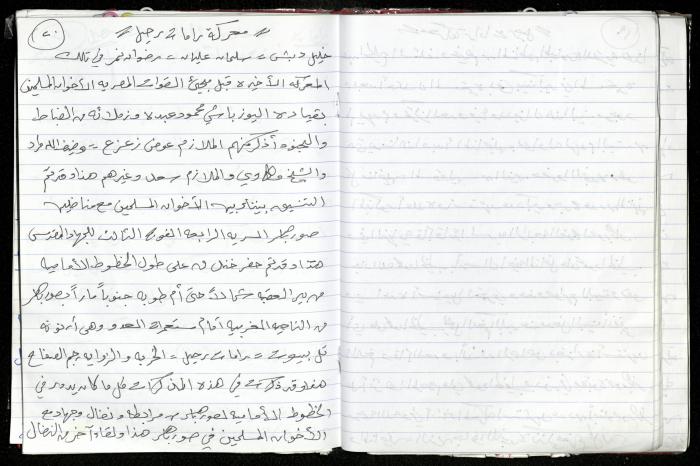 ٢٠
= معركة رامات رحيل =
خليل دبش = سلمان عليان = رضوان نمر في تلك
المعركة الأخيرة قبل مجيئ القوات المصرية الأخوان المسلمين
بقيادة اليوزباشي محمود عبده وزملائه من الضباط
والجنود أذكر منهم الملازم عوض زعزع = وضيف الله مراد
والشيخ والملازم سعد وغيرهم هذا وقد تم
التنسيق بيننا وبين الأخوان المسلمين مع مناضلين
صور باهر السرية الرابعة الفوج الثالث للجهاد المقدس
هذا وقد تم حفر خندق على طول الخطوط الأمامية
من دير العقبة شمالاً حتى أم طوبه جنوباً ماراً بصور باهر
من الناحية الغربية أمام مستعمرات العدو وهي أرنونه
تل بيوت = رامات رحيل = الخربة و
هذا وقد ذكرت في هذه المذكرات كل ما كان يدور في
الخطوط الأمامية لصور باهر من مرابطة ونضال وجهاد مع
الأخوان المسلمين في صور باهر هذا ولقاء آخر من النضال